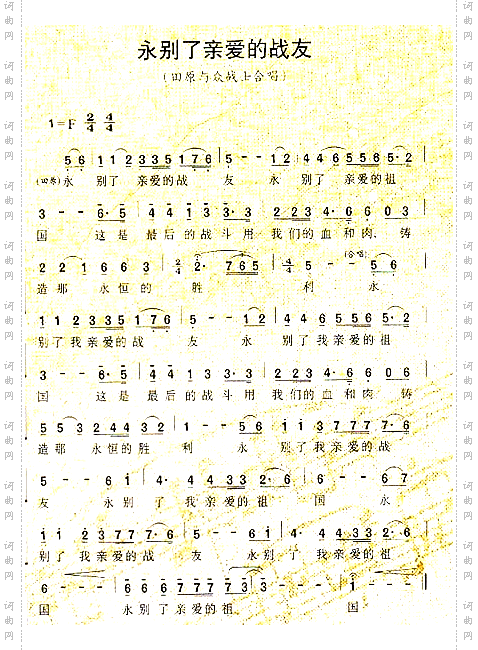 永别了亲爱的战友
(田原与众战士合唱)
1=F 2/4 4/4
5 6 | 1 1 2 3 3 5 1 7 6 | 5 - - 1 2 | 4 4 6 5 5 6 5· 2 |
(田原)永 别了 亲爱的战 友 永 别了 亲爱的祖
3 - - 6· 5 | 4 4 1 3 3· 3 | 2 2 3 4· 6 6 0 3 |
国 这是 最后的战斗用 我们的血和肉, 铸
2 2 1 6 6 3 | 2/4 2· 7 6 5 | 4/4 5 - - 5 6 |
(合唱)
造那 永恒的 胜 利 永
1 1 2 3 3 5 1 7 6 | 5 - - 1 2 | 4 4 6 5 5 6 5· 2 |
别了我亲爱的战 友 永 别了我亲爱的祖
3 - - 6· 5 | 4 4 1 3 3· 3 | 2 2 3 4· 6 6 0 3 |
国 这是 最后的战斗用 我们的血和肉 铸
5 5 3 2 4 4 3 2 | 1 - - 5 6 | 1 1 3 7 7 7 7· 6 |
造那 永恒的胜 利 永 别了我亲爱的战
5 - 6 1 | 4· 4 4 3 3 2 6 | 6 - - 6 7 |
友 永别 了 我亲爱的祖 国 永
1 1 2 3 7 7 7· 6 | 5 - - 6 1 | 4· 4 4 3 3 2 6 |
别了 我亲爱的战 友 永别 了 我亲爱的祖
6 - - 6 | 6 6 6 7 7 7 7 3 | 3 - - - | 1 - - - |
国 永别了亲爱的祖 国
词曲网